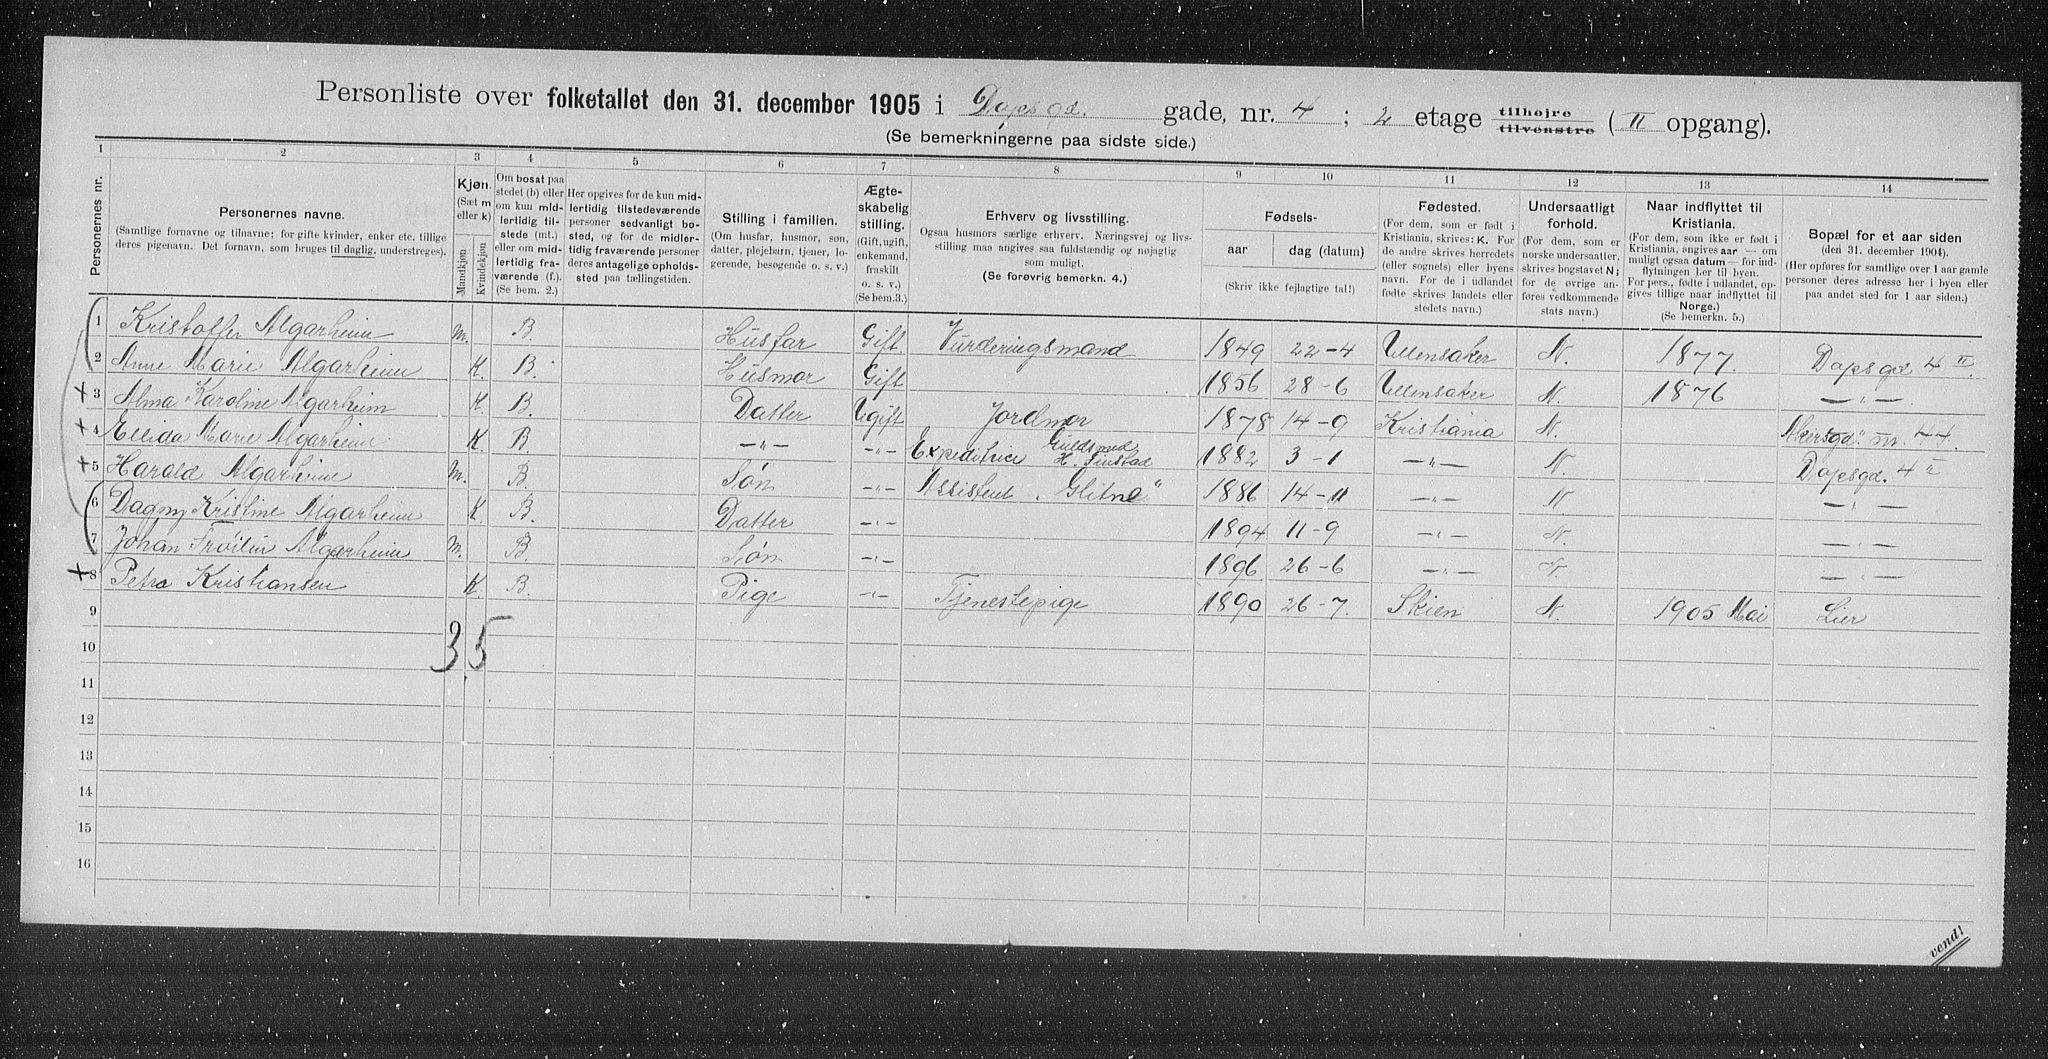 Personliste over folketallet den 31. december 1905 i Dopsgd. gade, nr. 4 ; 2 etage tilhøjre tilvenstre ( II opgang).
(Se bemerkningerne paa sidste side.)
1 2 3 4 5 6 7 8 9 10 11 12 13 14
Personernes nr.
Personernes navne.
(Samtlige fornavne og tilnavne; for gifte kvinder, enker etc. tillige
deres pigenavn. Det fornavn, som bruges til daglig, understreges).
Kjøn.
(Sæt m
eller k)
Mandkjøn
Kvindekjøn
Om bosat paa
stedet (b) eller
om kun mid-
lertidig til-
stede (mt.)
eller om mid-
lertidig fra-
værende (f.).
(Se bem. 2.)
Her opgives for de kun mid-
lertidig tilstedeværende
personer sedvanligt bo-
sted, og for de midler-
tidig fraværende personer
deres antagelige opholds-
sted paa tællingstiden.
Stilling i familien.
(Om husfar, husmor, søn,
datter, plejebarn, tjener, lo-
gerende, besøgende o. s. v.)
Ægte-
skabelig
stilling.
(Gift, ugift,
enkemand,
fraskilt
o. s. v.)
(Se bem.3.)
Erhverv og livsstilling.
Ogsaa husmors særlige erhverv. Næringsvej og livs-
stilling maa angives saa fuldstændig og nøjagtig
som muligt.
(Se forøvrig bemerkn. 4.)
Fødsels-
aar dag (datum)
(Skriv ikke fejlagtige tal!)
Fødested.
(For dem, som er født i
Kristiania, skrives: K. For
de andre skrives herredets
(eller sognets) eller byens
navn. For de i udlandet
fødte skrives landets eller
stedets navn.)
Undersaatligt
forhold.
(For dem, som er
norske undersaatter,
skrives bogstavet N;
for de øvrige an-
føres vedkommende
stats navn.)
Naar indflyttet til
Kristiania.
(For dem, som ikke er født i
Kristiania, angives aar — om
muligt ogsaa datum — for ind-
flytningen her til byen.
For pers., fødte i udlandet, op-
gives tillige naar indflyttet til
Norge.)
(Se bemerkn. 5.)
Bopæl for et aar siden
(den 31. december 1904).
(Her opføres for samtlige over 1 aar gamle
personer deres adresse her i byen eller
paa andet sted for 1 aar siden.)
1 Kristoffer Algarheim m. B. Husfar Gift. Vurderingsmand 1849 22-4 Ullensaker N. 1877. Dopsgd 4 II.
2 Anne Marie Algarheim K. B. Husmor Gift 1856 28-6 Ullensaker N. 1876 —„—
+ 3 Alma Karoline Algarheim K. B. Datter Ugift Jordmor 1878 14-9 Kristiania N. Akersgd. nr. 44.
+ 4 Ellida Marie Algarheim K. B —„— —„— Expeditrice Guldsmed H. 1882 3-1 —„— N. Dopsgd. 4 II
+ 5 Harald Algarheim m. B. Søn —„— Assistent „Glitne" 1886 14-11 —„— N —„—
6 Dagny Kristine Algarheim K. B. Datter —„— 1894 11-9 —„— N. —„—
7 Johan Algarheim m. B. Søn —„— 1896 26-6 —„— N. —„—
+ 8 Petra Kristiansen K. B. Pige —„— Tjenestepige 1890 26-7. Skien N. 1905 Mai Lier
9
10 3 5
11
12
13
14
15
16
vend!